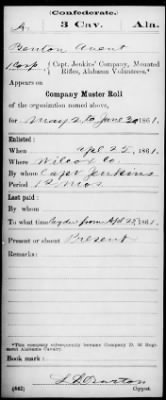 (Confederate.)
A. 3 Cav. Ala.
Benton Avent
1 Corp, Capt. Jenkins' Company, Mounted
Rifles, Alabama Volunteers.*
Appears on
Company Muster Roll
of the organization named above,
for May 2 to June 30, 1861.
Enlisted:
When Apl 25, 1861.
Where Wilcox Co.
By whom Capt Jenkins
Period 12 mos
Last paid:
By whom
To what time
Present or absent Present
Remarks:
*This company subsequently became Company D, 3d Regiment Alabama Cavalry.
Book mark:
(642) Copyist.